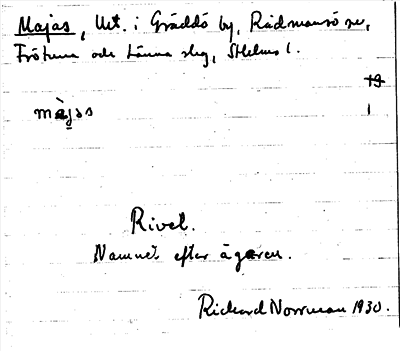 Majas, Urt. i Gräddö by, Rådmansö sn,
Frötuna och Länna slg, Sthlms l.
19
màjas 1
Rivet.
Namnet efter ägaren.
Richard Norrman 1930.